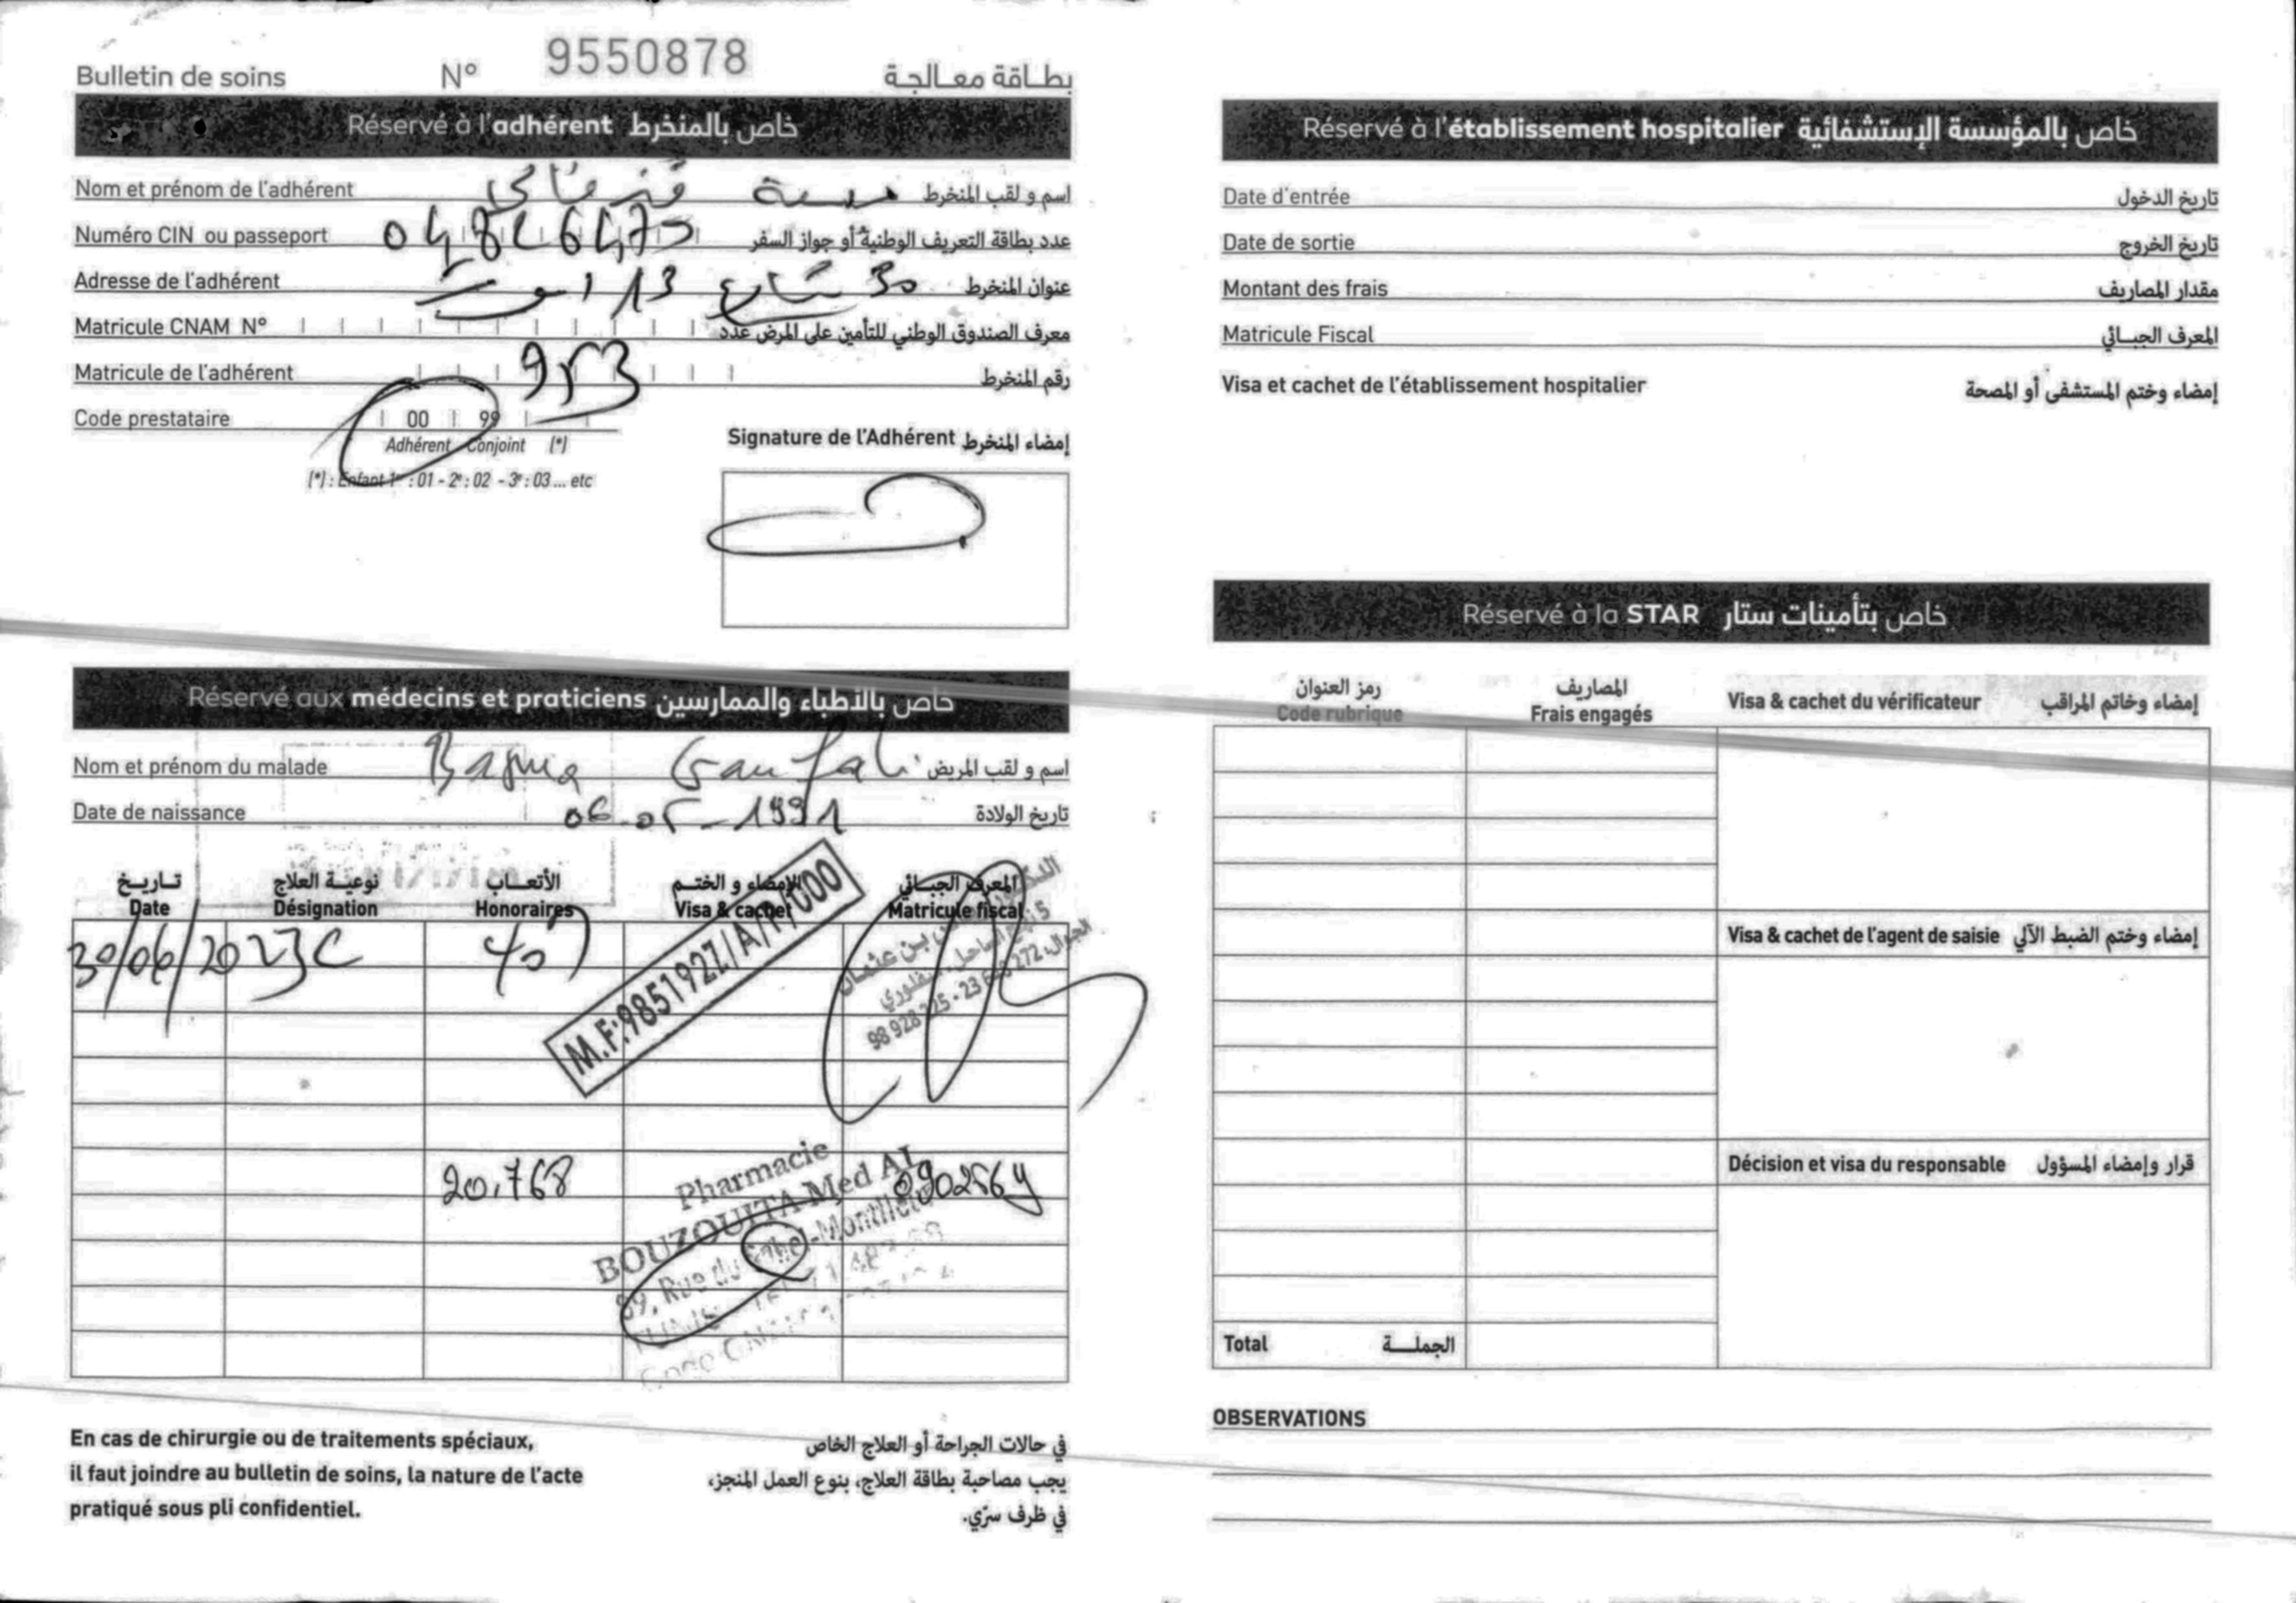 Bulletin de soins N° 9550878 بطاقة معالجة
Réservé à l'adhérent خاص بالمنخرط
Nom et prénom de l'adhérent اسم و لقب المنخرط
Numéro CIN ou passeport عدد بطاقة التعريف الوطنية أو جواز السفر
Adresse de l'adhérent 30 شارع 13 اوت عنوان المنخرط
Matricule CNAM N° معرف الصندوق الوطني للتأمين على المرض عدد
Matricule de l'adhérent 953 رقم المنخرط
Code prestataire 00 99
Adhérent Conjoint (*)
(*) : Enfant 1er : 01 - 2e : 02 - 3e : 03 ... etc
Signature de l'Adhérent إمضاء المنخرط
Réservé aux médecins et praticiens خاص بالأطباء والممارسين
Nom et prénom du malade اسم و لقب المريض
Date de naissance 06-05-1991 تاريخ الولادة
تاريخ نوعية العلاج الأتعاب الإمضاء و الختم المعرف الجبائي
Date Désignation Honoraires Visa & cachet Matricule fiscal
30/06/2023 C 40
M.F:985192Z/A/P/000
بن عثمان
98 928 225 - 23 6 272 الجوال
20,768 0902564
Pharmacie
BOUZOUITA Med Al
89, Rue du Sahel - Montfleury
En cas de chirurgie ou de traitements spéciaux,
il faut joindre au bulletin de soins, la nature de l'acte
pratiqué sous pli confidentiel.
في حالات الجراحة أو العلاج الخاص
يجب مصاحبة بطاقة العلاج، بنوع العمل المنجز،
في ظرف سرّي.
Réservé à l'établissement hospitalier خاص بالمؤسسة الإستشفائية
Date d'entrée تاريخ الدخول
Date de sortie تاريخ الخروج
Montant des frais مقدار المصاريف
Matricule Fiscal المعرف الجبائي
Visa et cachet de l'établissement hospitalier إمضاء وختم المستشفى أو المصحة
Réservé à la STAR خاص بتأمينات ستار
رمز العنوان المصاريف
Code rubrique Frais engagés Visa & cachet du vérificateur إمضاء وخاتم المراقب
Visa & cachet de l'agent de saisie إمضاء وختم الضبط الآلي
Décision et visa du responsable قرار وإمضاء المسؤول
Total الجملة
OBSERVATIONS